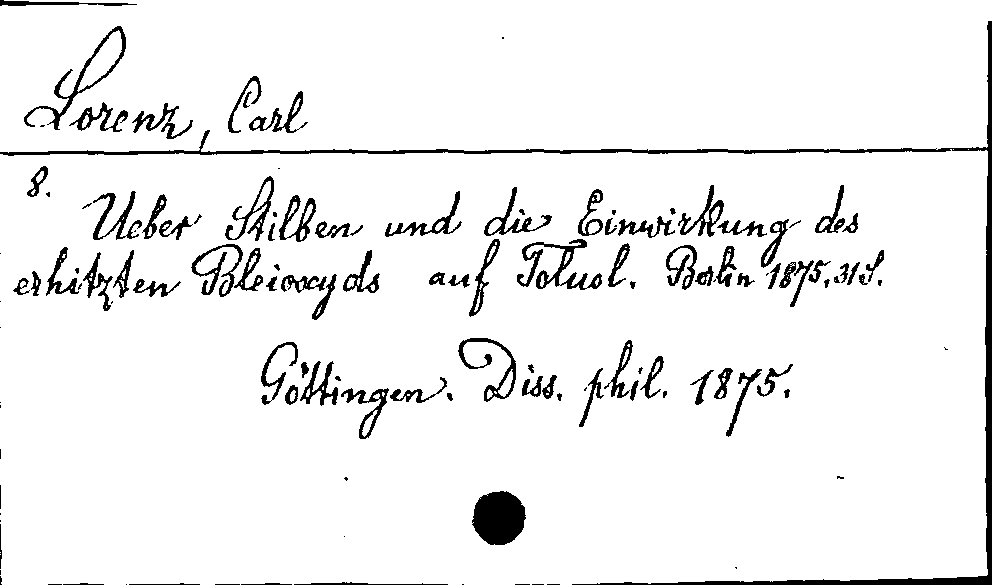 Lorenz, Carl
8.
Ueber Stilben und die Einwirkung des
erhitzten Bleioxyds auf Toluol. Berlin 1875. 31 S.
Göttingen. Diss. phil. 1875.